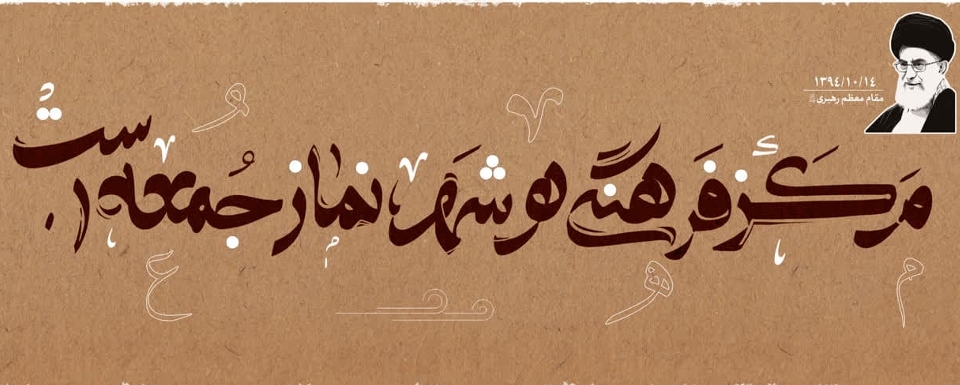 ۱۳۹۴/۱۰/۱۴
مقام معظم رهبری
مَرکز فَرهنگی هر شَهر نماز جُمعه است.